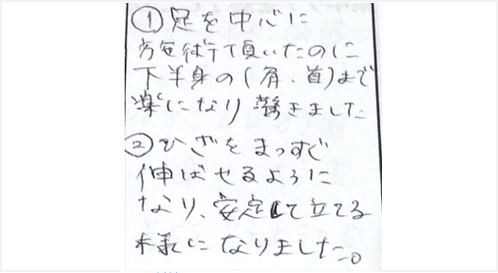 ①足を中心に
施術して頂いたのに
下半身の(肩、首)まで
楽になり驚きました
②ひざをまっすぐ
伸ばせるように
なり、安定して立てる
様になりました。